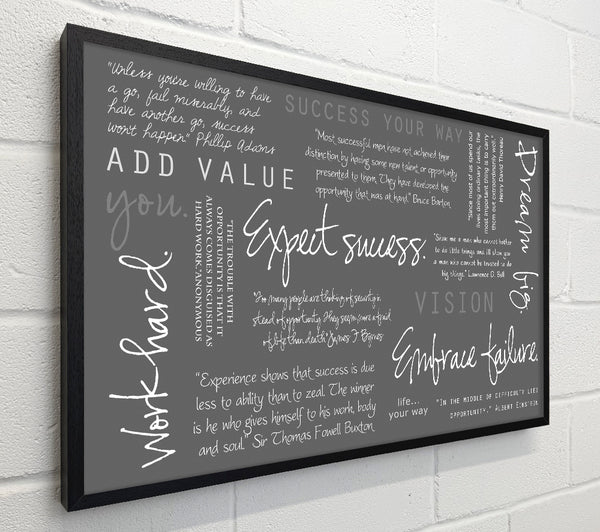 "Unless you're willing to have
a go, fail miserably, and
have another go, success
won't happen" Phillip Adams
SUCCESS YOUR WAY
"Most successful men have not achieved their
distinction by having some new talent or opportunity
presented to them. They have developed the
opportunity that was at hand." Bruce Barton
"Since most of us spend our
lives doing ordinary tasks, the
most important thing is to carry
them out extraordinarily well."
Henry David Thoreau
Dream big.
ADD VALUE
you.
"THE TROUBLE WITH
OPPORTUNITY IS THAT IT
ALWAYS COMES DISGUISED AS
HARD WORK."ANONYMOUS
Expect success.
"Show me a man who cannot bother
to do little things, and I'll show you
a man who cannot be trusted to do
big things." Lawrence D. Bell
Work hard.
"Too many people are thinking of security in-
stead of opportunity. They seem more afraid
of life than death" James F. Byrnes
VISION
Embrace failure.
"Experience shows that success is due
less to ability than to zeal. The winner
is he who gives himself to his work, body
and soul." Sir Thomas Fowell Buxton
life...
your way
"IN THE MIDDLE OF DIFFICULTY LIES
OPPORTUNITY." ALBERT EINSTEIN